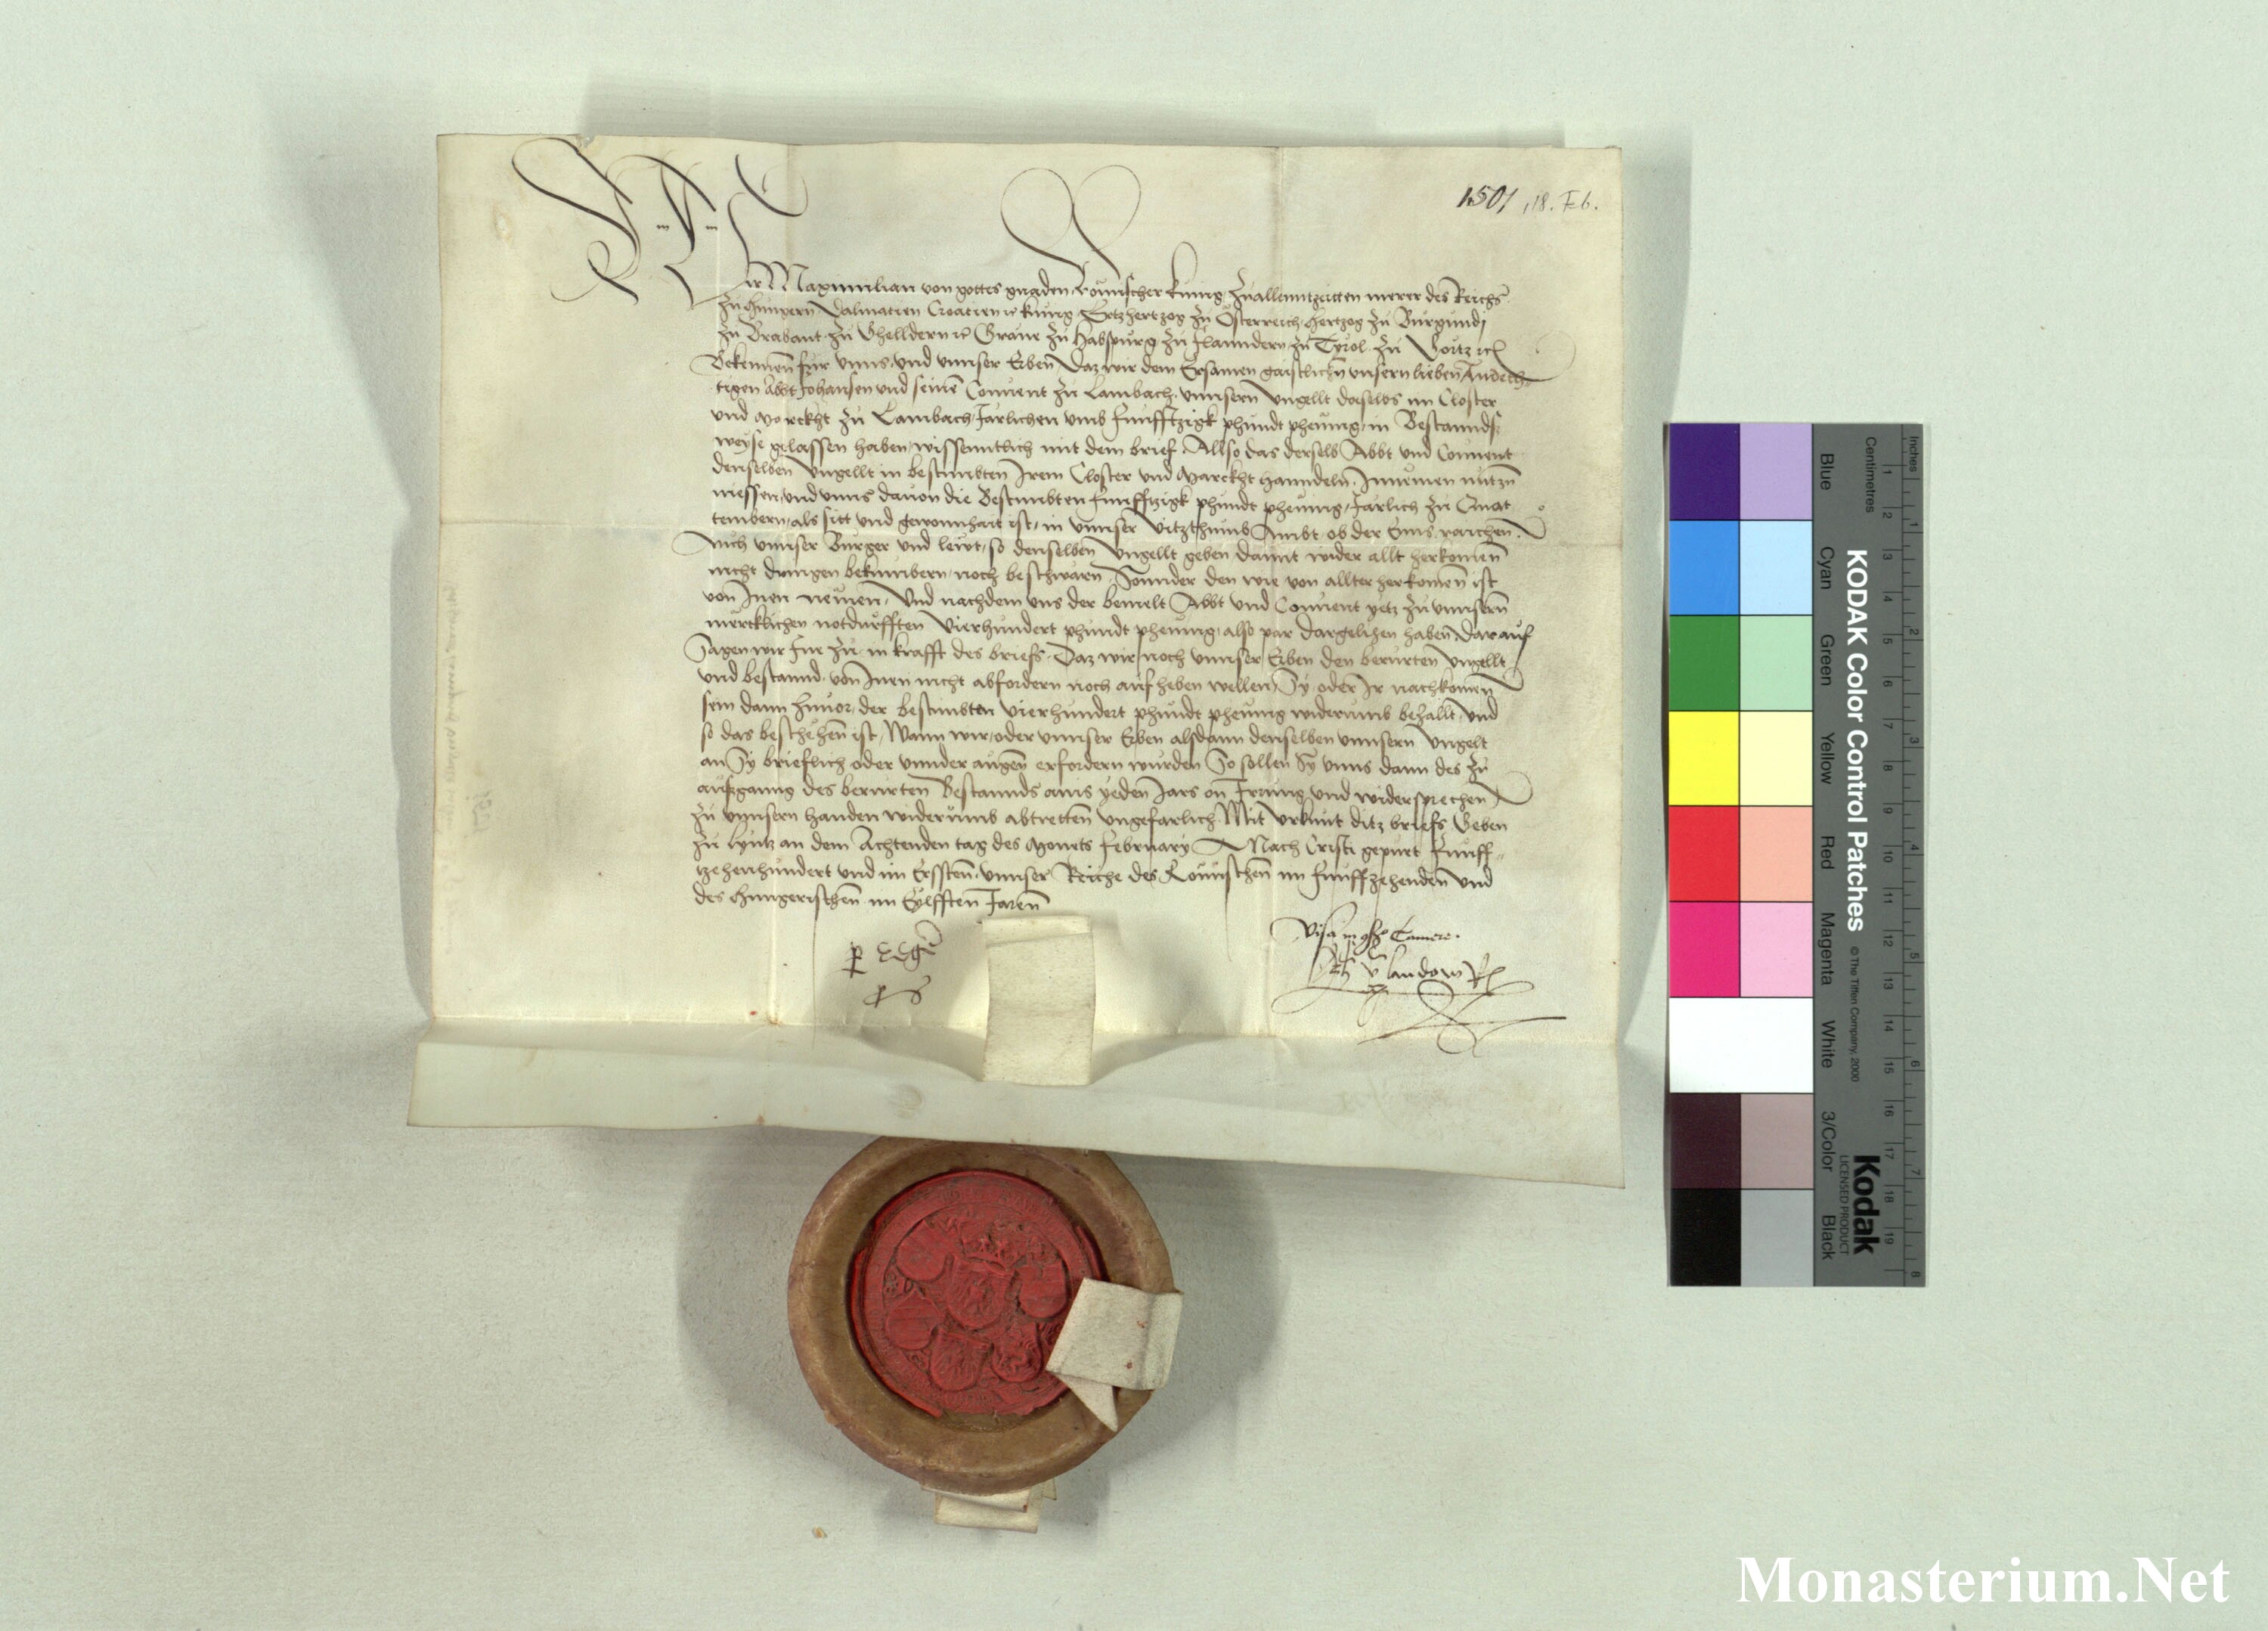 1501, 18. Feb.
Wir Maximilian von gottes gnaden Römischer kunig zuallenntzeitten merer des Reichs
zu Hungern Dalmatien Croatien rc kunig Ertzhertzog zu Österreich Hertzog zu Burgundj
zu Brabant zu Ghelldern rc Graue zu Habspurg zu Flanndern zu Tyrol zu Görtz rc
Bekennen für vnns vnd vnnser Erben Daz wir dem Ersamen gaistlichn vnsern lieben Andech-
tigen Abbt Johansen vnd seinem Conuent zu Lambach vnnsern vngellt daselbs im Closter
vnd Marckht zu Lambach Järlichen vmb funfftzigk phundt phening in Bestannds
weyse gelassen haben wissenntlich mit dem brief Allso das derselb Abbt vnd Conuent
denselben Vngellt in bestimbten Irem Closter vnd Marckht hanndeln Innemen nutzn
niessen vnd vnns dauon die Bestimbten funfftzigk phundt phening Järlich zu Quat
tembern als sitt vnd gewonnhait ist in vnnser Vitzthumb Ambt ob der Enns raichen
Auch vnnser Burger vnd lewt so denselben vngellt geben damit wider allt herkomen
nicht dringen bekumbern noch beschwärn Sonnder den wie von allter herkomen ist
von Inen nemen Vnd nachdem vns der bemelt Abbt vnd Conuent yetz zu vnnsern
mercklichen notdurfften Vierhundert phundt phening also par dargelihen haben darauf
Sagen wir Jnn zu in krafft des briefs Daz wir noch vnnser Erben den berürten vngellt
vnd bestannd von Inen nicht abfordern noch aufheben wellen Sy oder Ir nachkomen
sein dann zuuor der bestimbten vierhundert phundt phening widerumb bezallt vnd
so das beschehen ist Wann wir oder vnnser Erben alsdann denselben vnnsern Vngelt
an Sy brieflich oder vnnder augen erfordern wurden So sollen Sy vnns dann des zu
aufsganng des berürten Bestannds ains yeden Jars on Irrung vnd widersprechen
zu vnnsern handen widerumb abtretten vngefarlich Mit vrkunt ditz briefs Geben
zu Lyntz an dem Achtenden tag des Monets February Nach Cristi gepurt Funff-
tzehenhundert vnd im Erssten vnnser Reiche des Römischen im funffzehenden vnd
des Hungerischen im Eylfften Jaren
Visa in Camera
v landow
KODAK Color Control Patches
© The Tiffen Company, 2000
Kodak
LICENSED PRODUCT
Inches 1 2 3 4 5 6 7 8
Centimetres 1 2 3 4 5 6 7 8 9 10 11 12 13 14 15 16 17 18 19
Blue Cyan Green Yellow Red Magenta White 3/Color Black
Monasterium.Net